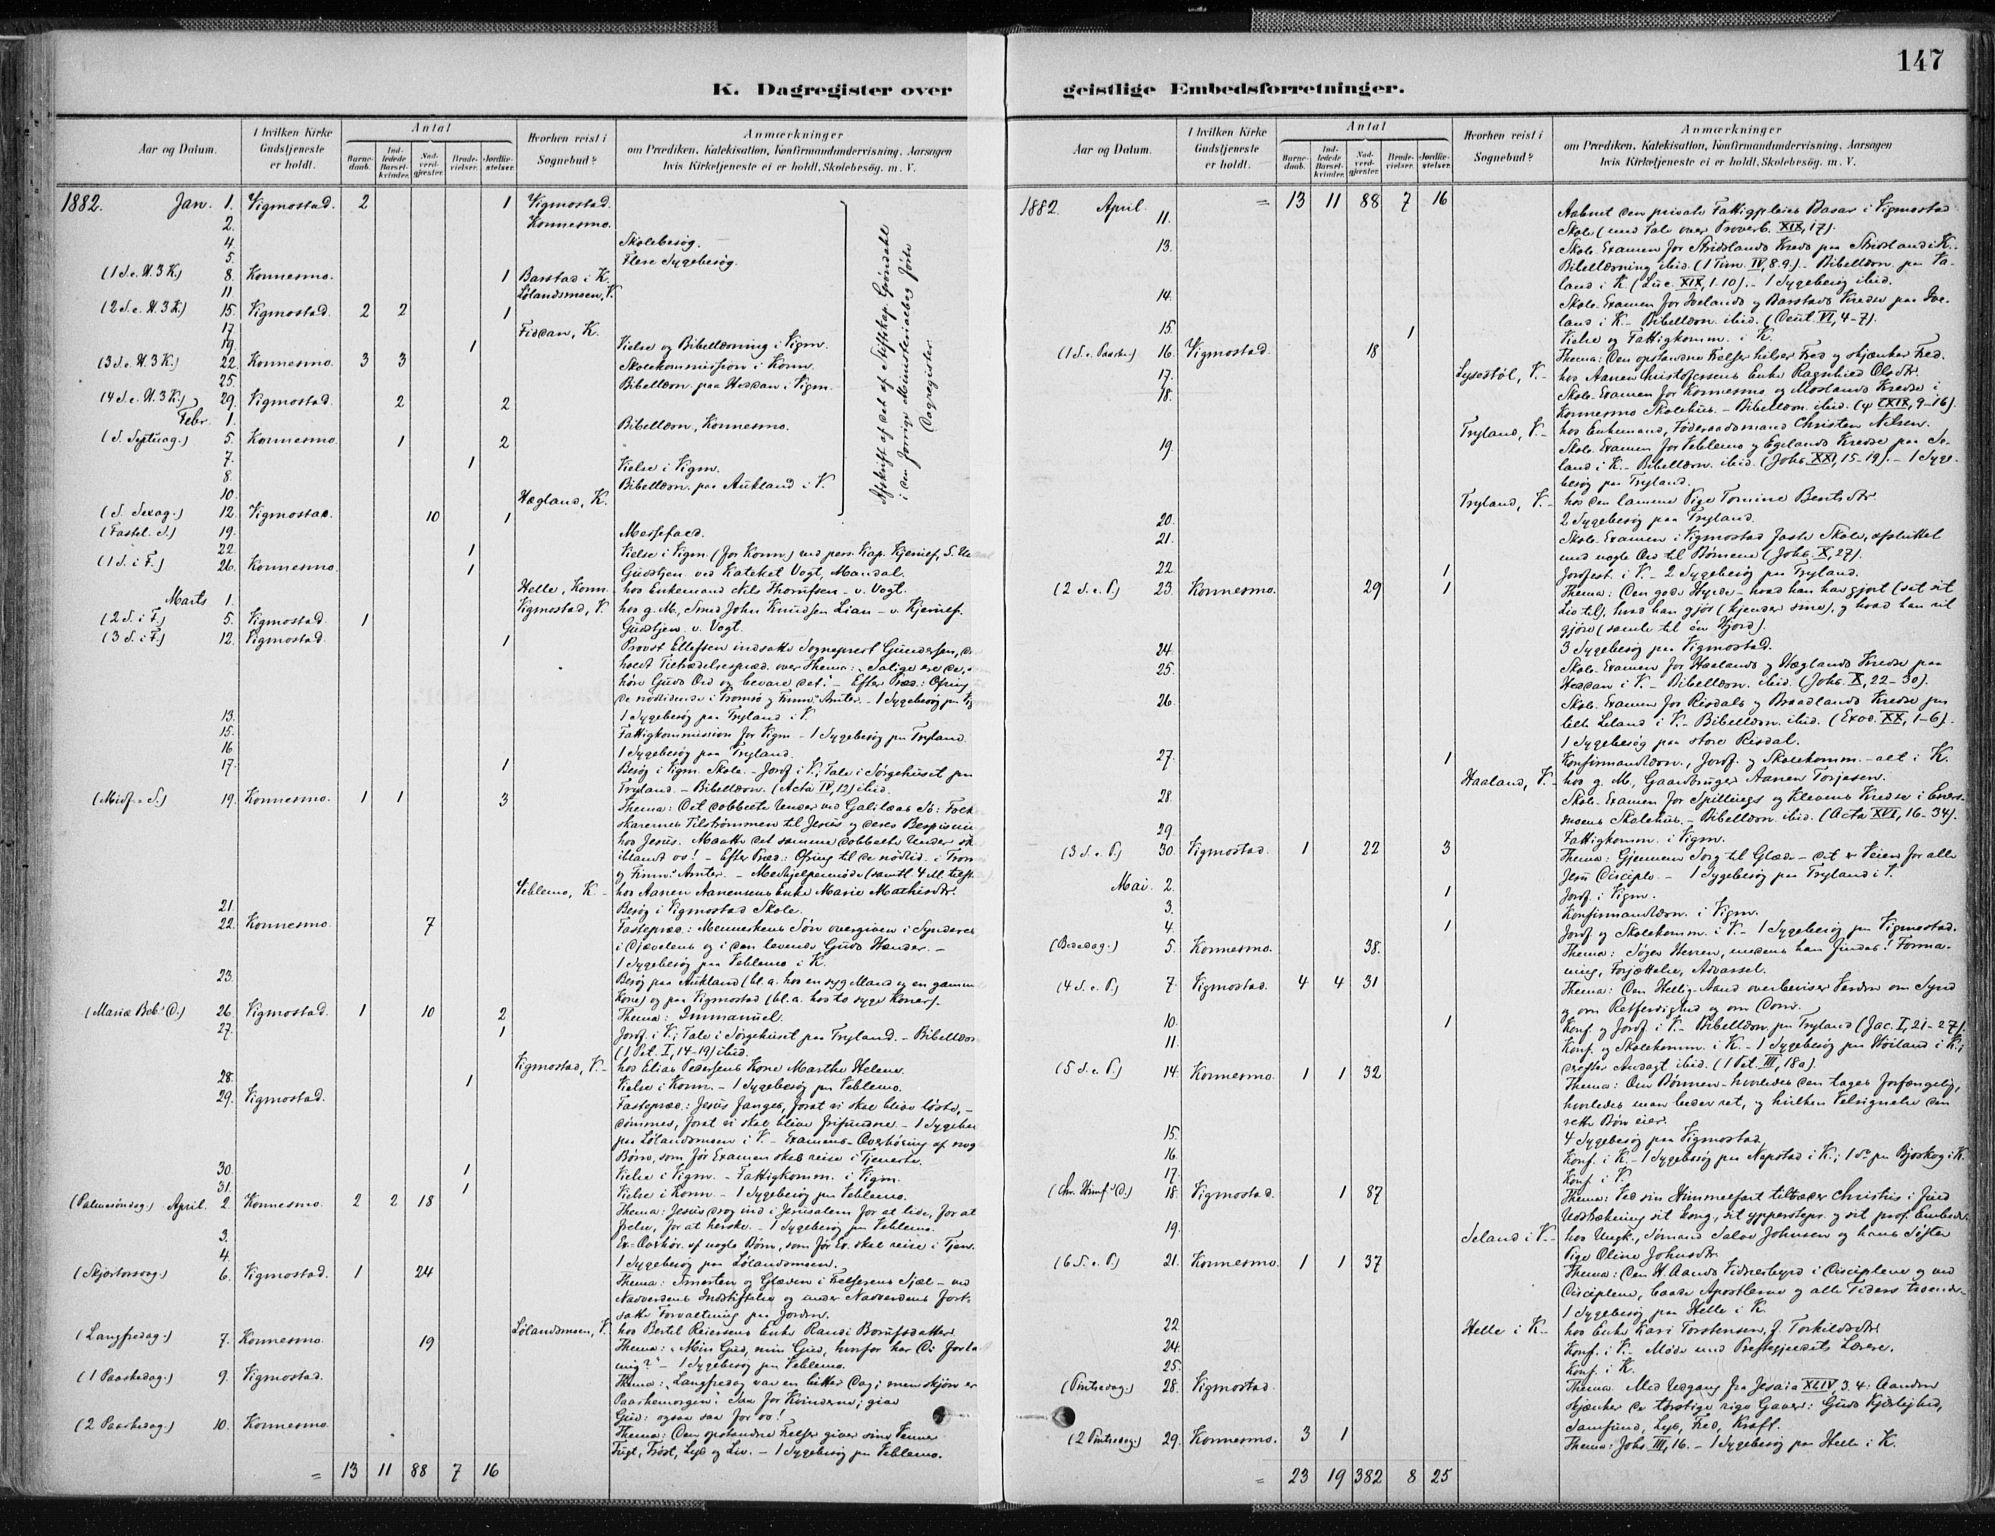 147
K. Dagregister over geistlige Embedsforretninger.
Aar og Datum. I hvilken Kirke Gudstjeneste er holdt. Antal Barnedaab. Indledede Barselkvinder. Nadverdgjæster. Brudevielser. Jordfæstelser. Hvorhen reist i Sognebud? Anmærkninger om Prædiken, Katekisation, Konfirmandundervisning, Aarsagen hvis Kirketjeneste ei er holdt, Skolebesøg. m. V.
1882. Jan. 1. Vigmostad. 2 1 Vigmostad.
2. Konnesmo.
4. Skolebesøg.
5. Flere Sygebesøg.
(1 S. e. H. 3 K.) 8. Konnesmo. 1 Barstad i K.
11 Lølandsmoen, V.
(2 S. e. H. 3 K.) 15. Vigmostad. 2 2 1
17. Fiddan, K.
19. 1 Vielse og Bibellæsning i Vigm.
(3 S. e. H. 3 K.) 22. Konnesmo. 3 3 Skolekommission i Konn.
25. Bibellæsn. paa Heddan i Vigm.
(4 S. e. H. 3 K.) 29. Vigmostad. 2 2
Febr. 1. Bibellæsn, Konnesmo.
(S. Septuag.) 5. Konnesmo. 1 2
7. 1 Vielse i Vigm.
8. Bibellæsn. paa Aukland i V.
10. Hægland, K.
Afskrift af det af Stiftskap. Grøndahl
i den forrige Ministerialbog førte
Dagregister.
(S. Sexag.) 12. Vigmostad. 10 1
(Fastel. S.) 19. Messefald.
22. 1 Vielse i Vigm. (for Konn.) ved pers. Kap. Kjerulf, S.
(1 S. i F.) 26. Konnesmo. 1 Gudstjen. ved Kateket Vogt, Mandal.
Helle, Konn. hos Enkemand Nils Thorufsen - v. Vogt.
Marts 1. Vigmostad, V. hos g. M. Smed John Knudsen Lian - v. Kjerulf.
(2 S. i F.) 5. Vigmostad. 1 Gudstjen. v. Vogt.
(3 S. i F.) 12. Vigmostad. 1 Provst Ellefsen indsatte Sogneprest Gundersen, de
holdt Tiltrædelsespræd. over Thema: "Salige ere de,
høre Guds Ord og bevare det." - Efter Præd.: Ofring
de nødlidende i Tromsø og Finm. Amter. - 1 Sygebesøg paa
13. 1 Sygebesøg paa Tryland i V.
15. Fattigkommission for Vigm - 1 Sygebesøg paa Tryland.
16 1 Sygebesøg paa Tryland.
17. 1 Besøg i Vigm. Skole. - Jordf. i V.; Tale i Sørgehuset paa
Tryland. - Bibellæsn. (Acta IV, 12) ibid.
(Midf. S.) 19. Konnesmo. 1 1 3 Thema: Det dobbelte Under ved Galilæas Sø: Folke
skarernes Tilstrømmen til Jesus og deres Bespisning
hos Jesus. Maatte det samme dobbelte Under ske
iblandt os! - Efter Præd.: Ofring til de nødlid. i Trom
og Finm. Amter. - Medhjelpermøde (samtl. 4 M. tilst.
Veblemo, K. - hos Aanen Aanensens Enke Marie Mathisdtr.
21. Besøg i Vigmostad Skole.
22. Konnesmo. 7 Fastepræd.: Menneskens Søn overgiven i Synderes
i Djævelens og i den levende Guds Hænder. -
1 Sygebesøg paa Veblemo i K.
23. Besøg paa Aukland (bl. a. hos en syg Mand og en gammel
Kone) og paa Vigmostad (bl. a. hos to syge Koner).
(Mariæ Beb. D.) 26. Vigmostad. 1 10 2 Thema: Immanuel.
27. 1 Jordf. i V.; Tale i Sørgehuset paa Tryland. - Bibellæsn
(1 Pet. I, 14-19) ibid.
Vigmostad, V. - hos Elias Pedersens Kone Marthe Helene.
28. 1 Vielse i Konn. - 1 Sygebesøg paa Veblemo.
29. Vigmostad. Fastepræd.: Jesus fanges, forat vi skal blive løste, -
dømmes, forat vi skal blive frifundne. - 1 Sygebes
paa Lølandsmoen i V. - Examens-Overhøring af nogle
Børn, som før Examen skal reise i Tjeneste.
30. 1 Vielse i Vigm. - Fattigkomm. i Vigm.
31. 1 Vielse i Konn - 1 Sygebesøg paa Veblemo.
(Palmesøndag.) April. 2. Konnesmo. 2 2 18 Thema: Jesus drog ind i Jerusalem for at lide, for at
frelse, for at herske. - 1 Sygebesøg paa Veblemo.
3. Ex-Overhør. af nogle Børn, som før Ex. skal reise i Tjen.
4. 1 Sygebesøg paa Lølandsmoen.
(Skjærtorsdag.) 6. Vigmostad. 1 24 Thema: Smerten og Glæden i Frelserens Sjæl - ved
Nadverdens Indstiftelse og under Nadverdens fort-
satte Forvaltning paa Jorden.
Lølandsmoen, V. hos Bertil Reiersens Enke Randi Borufsdatter.
(Langfredag.) 7. Konnesmo. 19 Thema: "Min Gud, min Gud, hvorfor har Du forla
mig?" - 1 Sygebesøg paa Veblemo.
(1 Paaskedag.) 9. Vigmostad. Thema: "Langfredag var en bitter Dag; men skjøn er
Paaskemorgen." Saa for Kvinderne; give
Gud: ogsaa saa for os!
(2 Paaskedag.) 10. Konnesmo. Thema: Den opstandne Frelser giver sine Venner
Frygt, Trøst, Lys og Liv. - 1 Sygebesøg paa Veblemo.
= 13 11 88 7 16
Aar og Datum. I hvilken Kirke Gudstjeneste er holdt. Antal Barnedaab. Indledede Barselkvinder. Nadverdgjæster. Brudevielser. Jordfæstelser. Hvorhen reist i Sognebud? Anmærkninger om Prædiken, Katekisation, Konfirmandundervisning, Aarsagen hvis Kirketjeneste ei er holdt, Skolebesøg. m. V.
1882. April. = 13 11 88 7 16
11. Aabnet den private Fattigpleies Basar i Vigmostad
Skole (med Tale over Proverb. XIX, 17).
13. Skole-Examen for Stridslands Kreds paa Stridsland i K. -
Bibellæsning ibid. (1 Tim. IV, 8.9). - Bibellæsn. paa
land i K. (Luc. XIX, 1-10). - 1 Sygebesøg ibid.
14. Skole-Examen for Ivelands og Barstads Kredse paa Ive-
land i K. - Bibellæsn. ibid. (Deut. VI, 4-7).
15. 1 Vielse og Fattigkomm. i K.
(1 S. e. Paaske.) 16. Vigmostad. 18 Thema: Den opstandne Frelser hilser Fred og skjænker Fred.
17. Lysestøl, V. - hos Aanen Christofersens Enke Ragnhild Olsdtr.
18. Skole-Examen for Konnesmo og Moslands Kredse i
Konnesmo Skolehus. - Bibellæsn. ibid. (ψ CXIX, 9-16).
Tryland, V. - hos Enkemand, Føderaadsmand Christen Nilsen.
19. Skole-Examen for Veblemo og Egelands Kredse paa
land i K. - Bibellæsn. ibid. (Johs. XXI, 15-19). - 1 Syge-
besøg paa Tryland.
Tryland, V. - hos den lamme Pige Tomine Berntsdtr.
20. 2 Sygebesøg paa Tryland.
21. Skole-Examen i Vigmostad faste Skole, afsluttet
med nogle Ord til Børnene (Johs. X, 27).
22 1 Jordfest. i V. - 2 Sygebesøg paa Tryland.
(2 S. e. P.) 23. Konnesmo. 29 1 Thema: Den gode Hyrde - hvad han har gjort (sat sit
Liv til), hvad han gjør (kjender sine), og hvad han vil
gjøre (samle til én Hjord).
24. 3 Sygebesøg paa Vigmostad.
25. Skole-Examen for Haalands og Hæglands Kredse paa
Heddan i V. - Bibellæsn. ibid. (Johs. X, 22-30).
26. Skole-Examen for Risdals og Braadlands Kredse paa
lille Leland i V. - Bibellæsn. ibid. (Exod. XX, 1-6).
1 Sygebesøg paa store Risdal.
27. 1 Konfirmandlæsn., Jordf. og Skolekomm. - alt i K.
Haaland, V. - hos g. M., Gaardbruger Aanen Torjesen.
28. Skole-Examen for Spillings og Klevens Kredse i
moens Skolehus. - Bibellæsn. ibid. (Acta XVI, 16-34).
29. Fattigkomm. i Vigm.
(3 S. e. P.) 30. Vigmostad. 1 22 3 Thema: Gjennem Sorg til Glæde - det er Veien for alle
Jesu Disciple. - 1 Sygebesøg paa Tryland i V.
Mai. 2. 1 Jordf. i Vigm.
3. Konfirmandlæsn. i Vigm.
4. 1 Jordf. og Skolekomm. i V. - 1 Sygebesøg paa Vigmostad.
(Bededag.) 5. Konnesmo. 38. Thema: Søger Herren, medens han findes! Forma-
ning, Forjættelse, Advarsel.
(4 S. e. P.) 7. Vigmostad. 4 4 31 Thema: Den Hellig-Aand overbeviser Verden om Synd
og om Retfærdighed og om Dom.
10. 1 Konf. og Jordf. i V. - Bibellæsn. paa Tryland (Jac. I, 21-27).
11. Konf. og Skolekomm. i K. - 1 Sygebesøg paa Høiland i K.;
derefter Andagt ibid. (1 Pet. III, 18a).
(5 S. e. P.) 14. Konnesmo. 1 1 32 Thema: Om Bønnen - hvorledes den tages forfængelig,
hvorledes man beder ret, og hvilken Velsignelse den
rette Bøn eier.
15. 4 Sygebesøg paa Vigmostad.
16. Konf. i K. - 1 Sygebesøg paa Napstad i K.; 1 Do paa Bjorkog i K.
17. Konf. i V.
(Chr. Himf. D.) 18. Vigmostad. 1 87 Thema: Ved sin Himmelfart tiltræder Christus i fuld
Udstrækning sit kong., sit ypperstepr. og sit prof. Embede.
19. Seland i V. - hos Ungk., Sømand Salve Johnsen og hans Søster
Pige Oline Johnsdtr.
(6 S. e. P.) 21. Konnesmo. 1 1 37 Thema: Den H. Aands Vidnesbyrd i Disciplene og ved
Disciplene, baade Apostlerne og alle Tiders troende.
1 Sygebesøg paa Helle i K.
22. Helle i K. - hos Enke Kari Torstensen, f. Torkildsdtr.
24. Konf. i V. Møde med Prestegjeldets Lærere.
25. Konf. i K.
(Pintsedag.) 28. Vigmostad. Thema. Med Udgang fra Jesaia XLIV, 3.4: Aanden
skjænker de tørstige rige Gaver: Guds Kjærlighed,
Samfund, Lys, Fred, Kraft.
(2 Pintsedag.) 29. Konnesmo. 3 1 Thema: Johs. III, 16. - 1 Sygebesøg paa Helle i K.
= 23 19 382 8 25